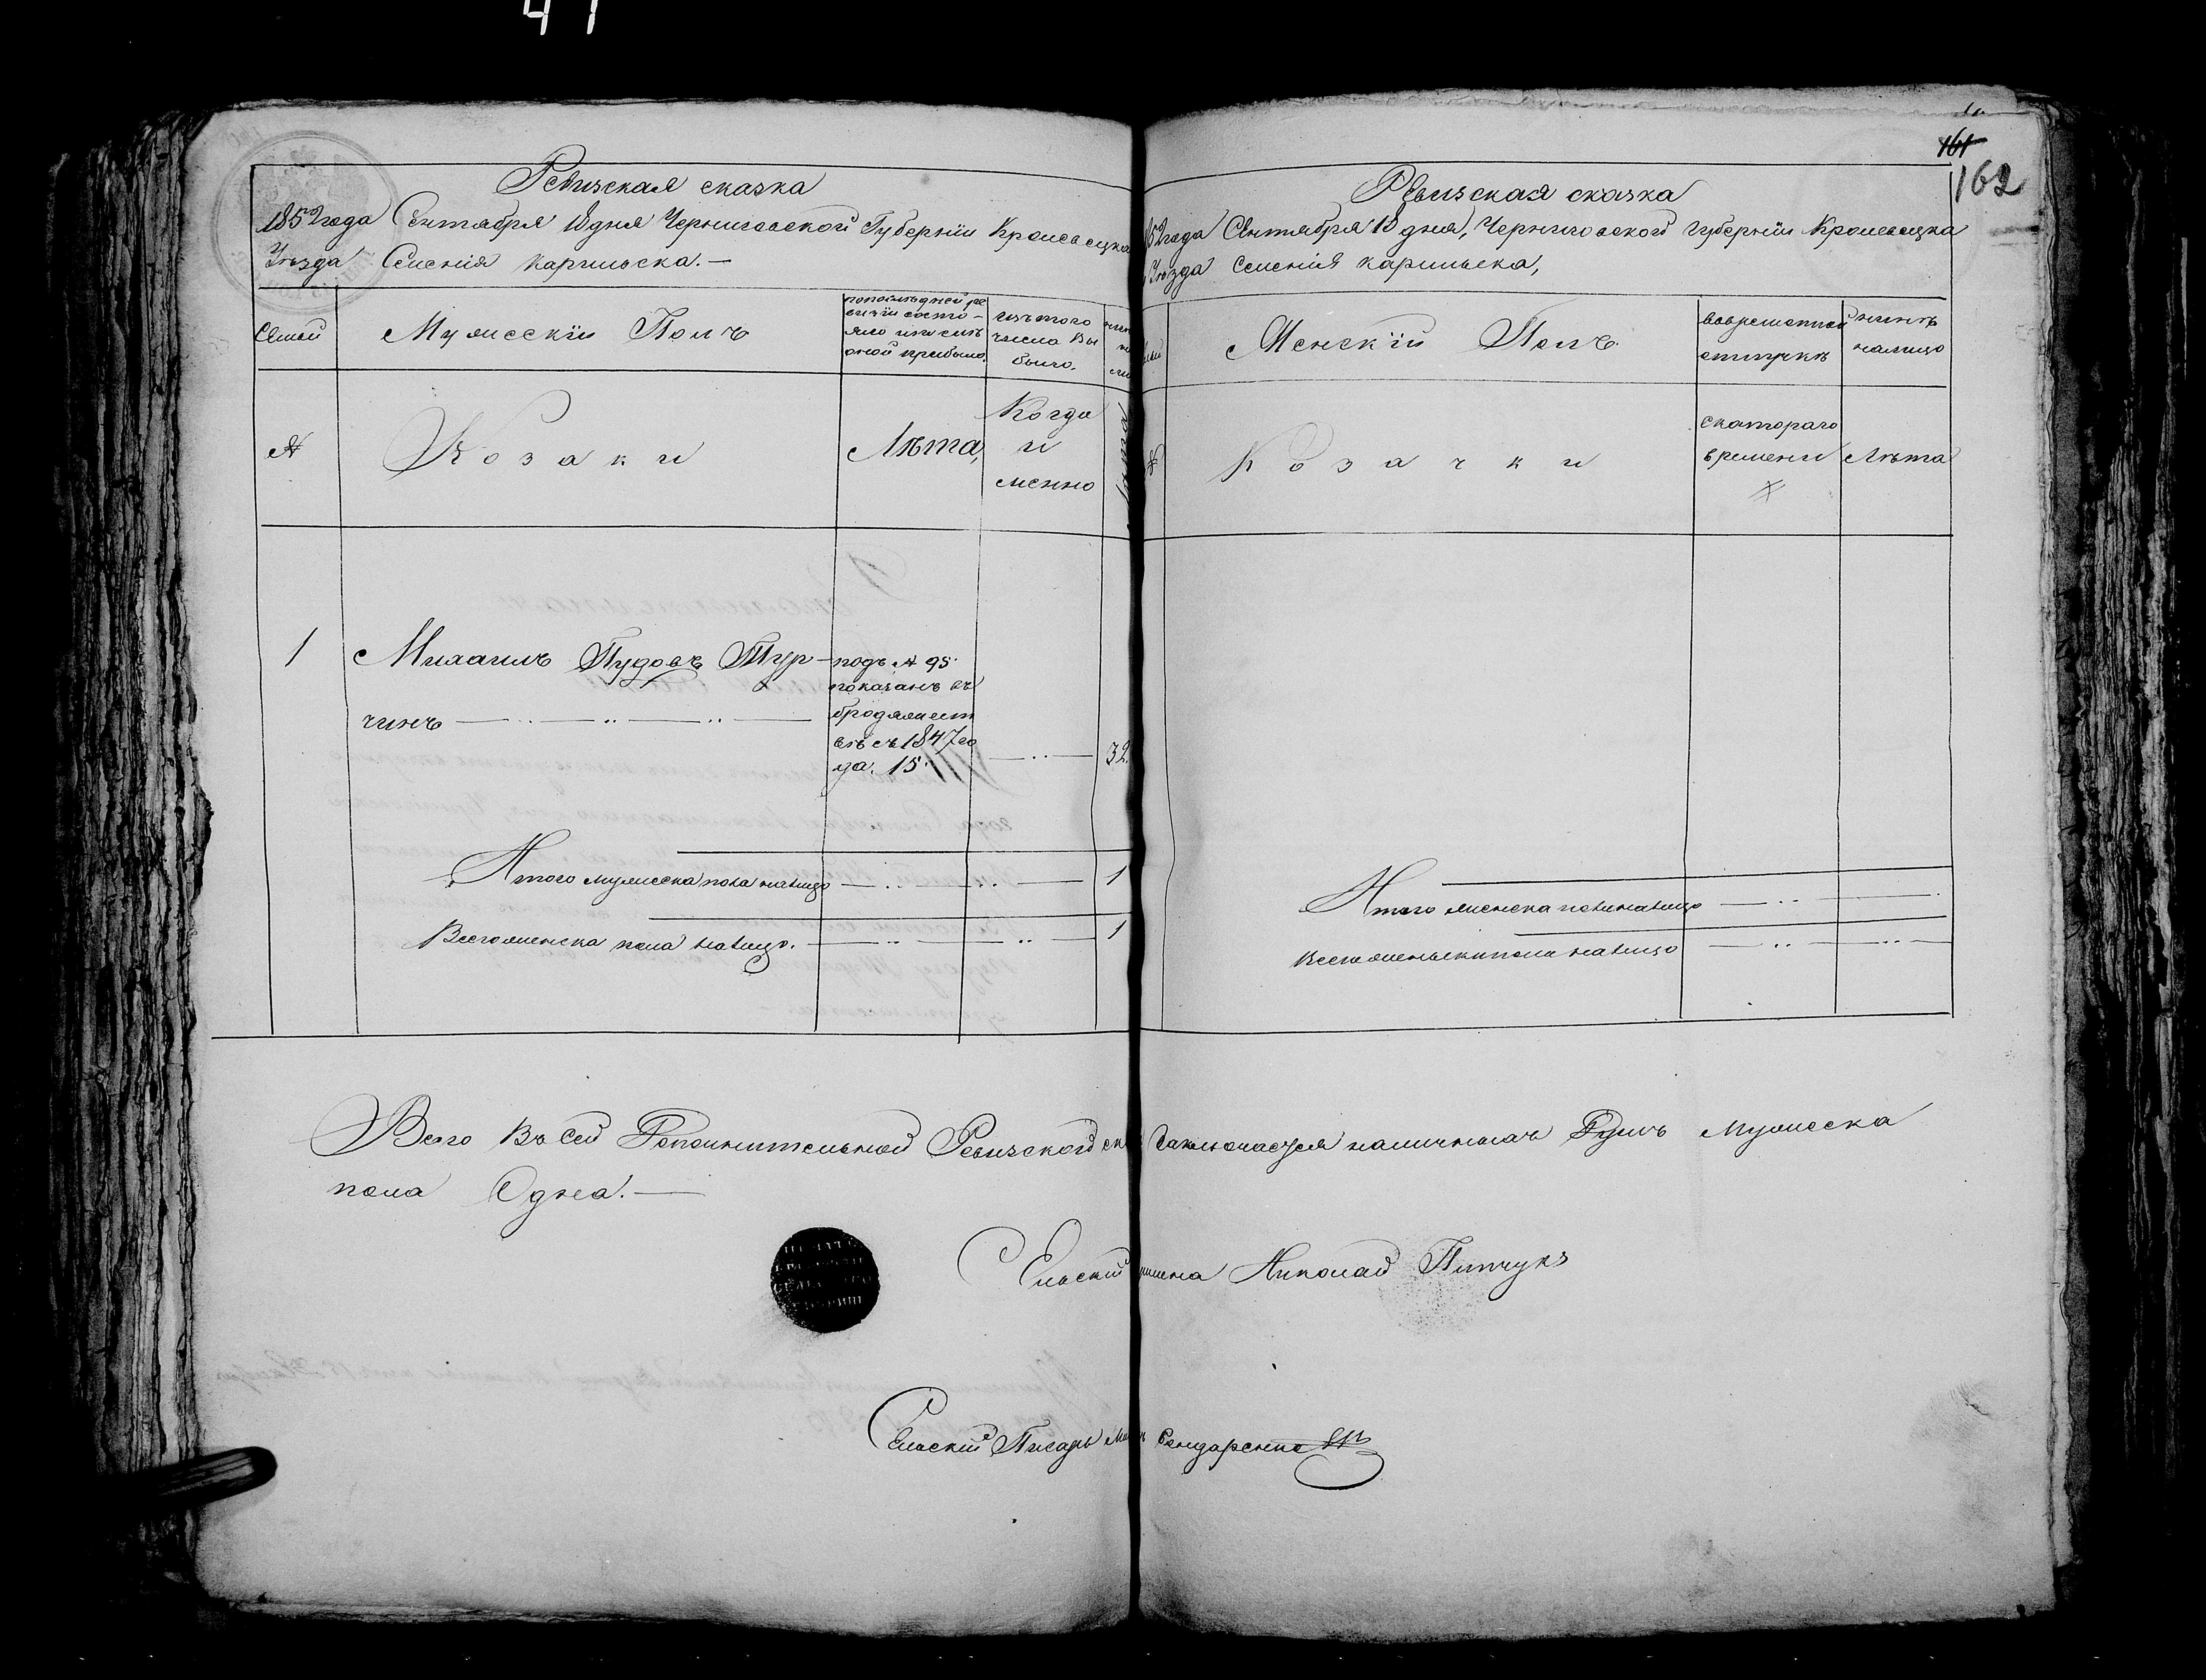 41
Ревизская сказка
1852 года Сентября 18 дня Черниговской Губернiи Кролевецка
Уѣзда Селенiя карыльска. —
Семьи
Мужескiй Полъ
по последней ре
визiи состо-
яло и после
оной прибыло.
изъ того
числа Вы
было.
№
Козаки
Лѣта,
Когда
и
менно
Лѣта
1
Михаилъ Пудовъ Тур-
чинъ
подъ № 95
показанъ въ
бродяжест
вѣ съ 1847 го
да. 15.
32.
Итого мужеска пола налицо 1
Всего женска пола налицо. 1
161
162
Ревизская сказка
52 года Сентября 18 дня, Черниговской губернiи Кролевецка
Уѣзда Селенiя карыльска,
Женскiй Полъ
во временной
отлучкѣ
нынѣ
налицо
№
Козачки
с котораго
времени
Лѣта
Итого женска пола налицо
Всего женска пола налицо
Всего Въ Сей Дополнительной Ревизской ска Заключается наличныхъ Душъ Мужеска
пола Одна. —
Сельскiй Николай
Сельскiй Писарь Бондаренко